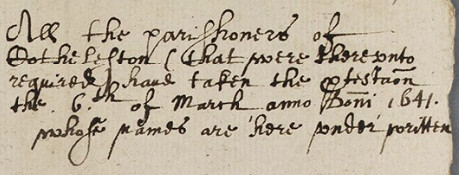 All the parishioners of
Cotheleston (that were thereunto
required) have taken the ptestaon
the 6th of March anno Domi 1641.
whose names are here under written